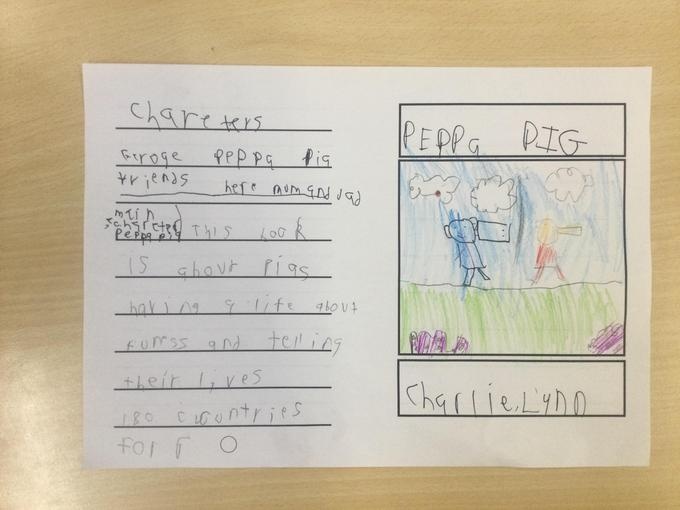 Chareters
Geroge peppa pig
friends here mum and dad
main
charecter
peppa pig
This book
is about pigs
having a life about
and telling
their lives
180 countries
for
PEPPa PIG
Charlie.Lynn